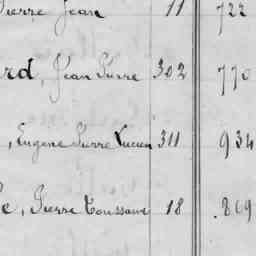 Pierre Jean 11 722
rd, Jean Pierre 302 770
, Eugène Pierre Lucien 311 934
e, Pierre Toussaint 18 869